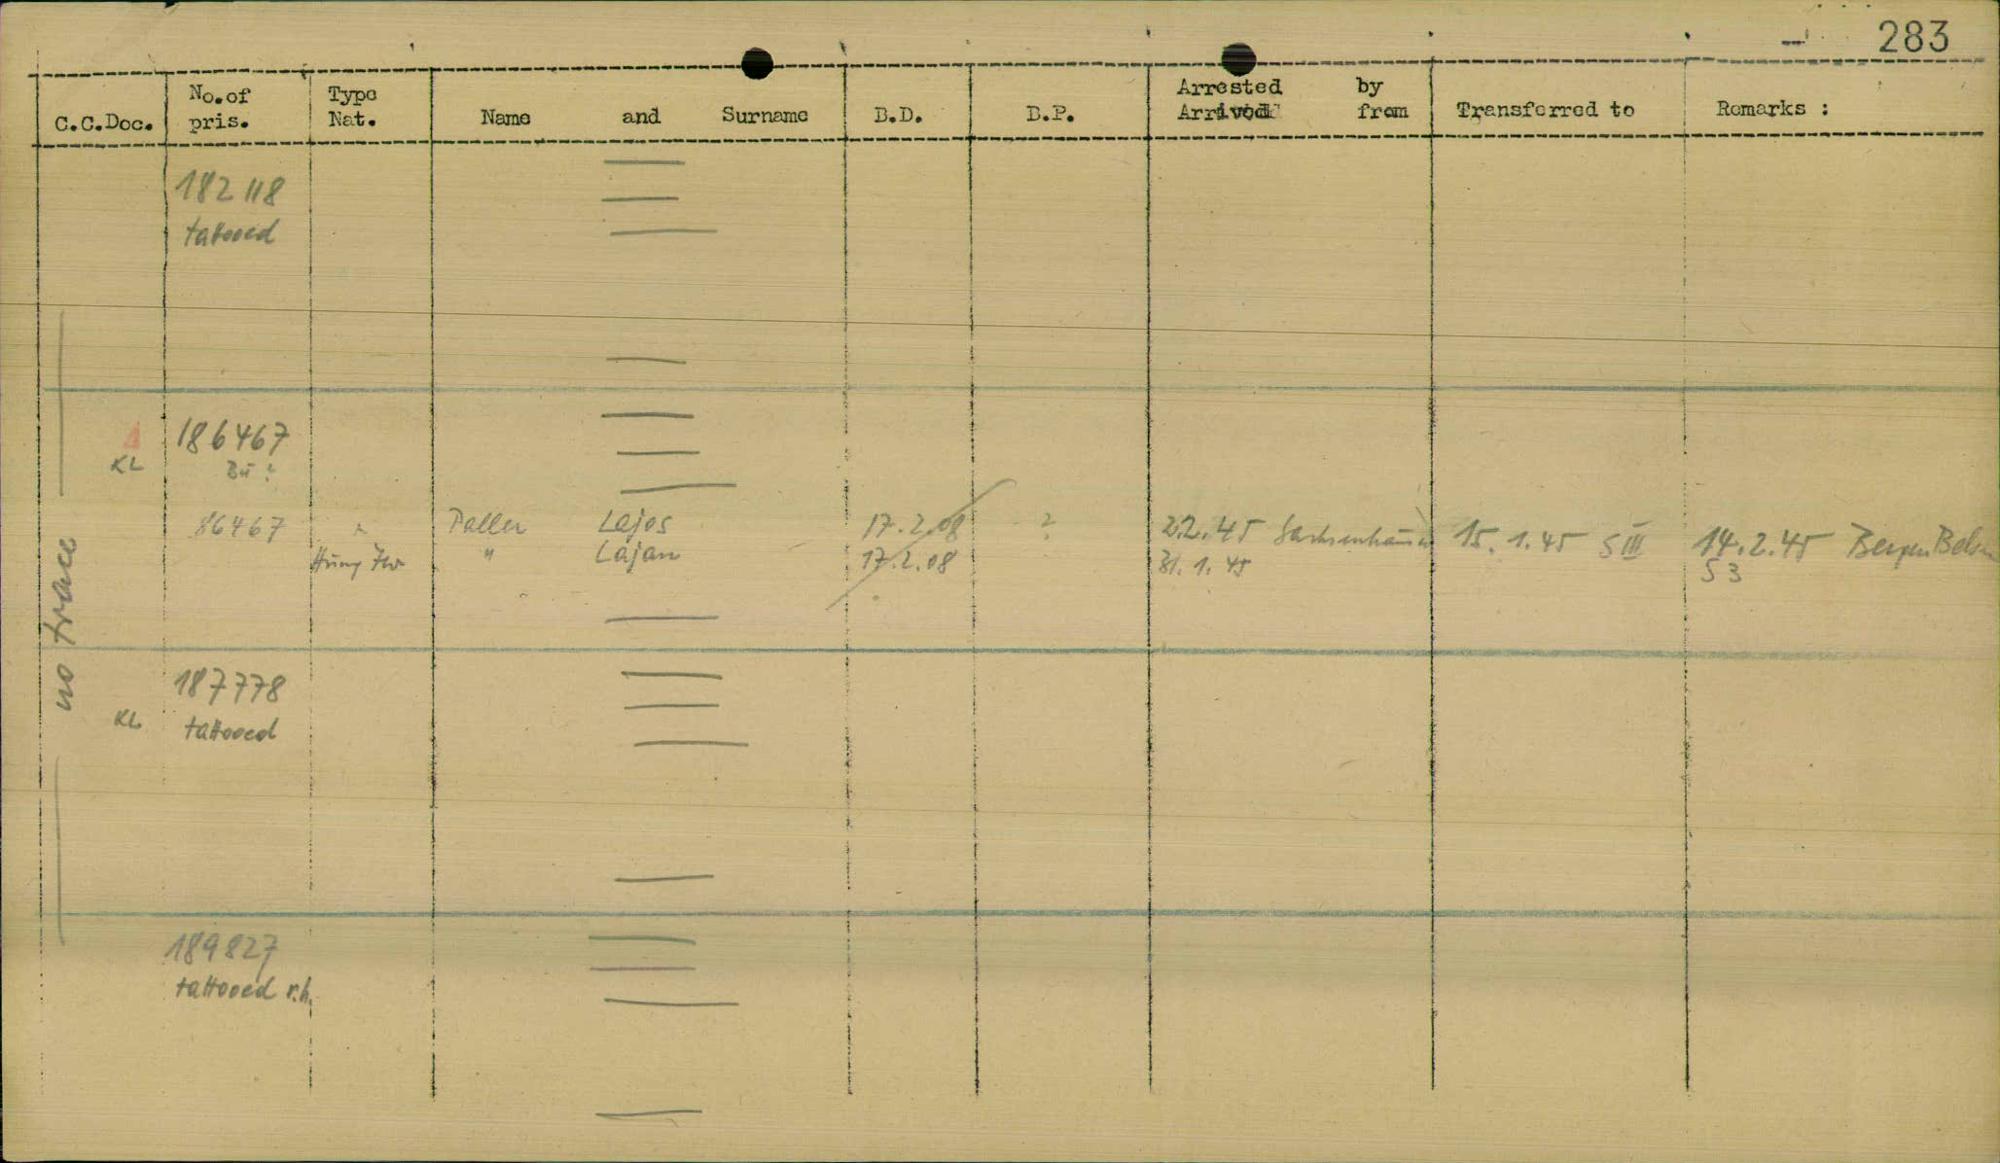 283
C.C.Doc. No.of pris. Type Nat. Name and Surname B.D. B.P. Arrested by Arrived from Transferred to Remarks :
182 118
tattooed
no trace
186467
KL Bu ?
86467 Paller Lajos 17.2.08 ? 2.2.45 Sachsenhausen 15.1.45 S III 14.2.45 Bergen Belsen
Hung " Lajan 17.2.08 31.1.45 S 3
187778
KL tattooed
189827
tattooed r.h.